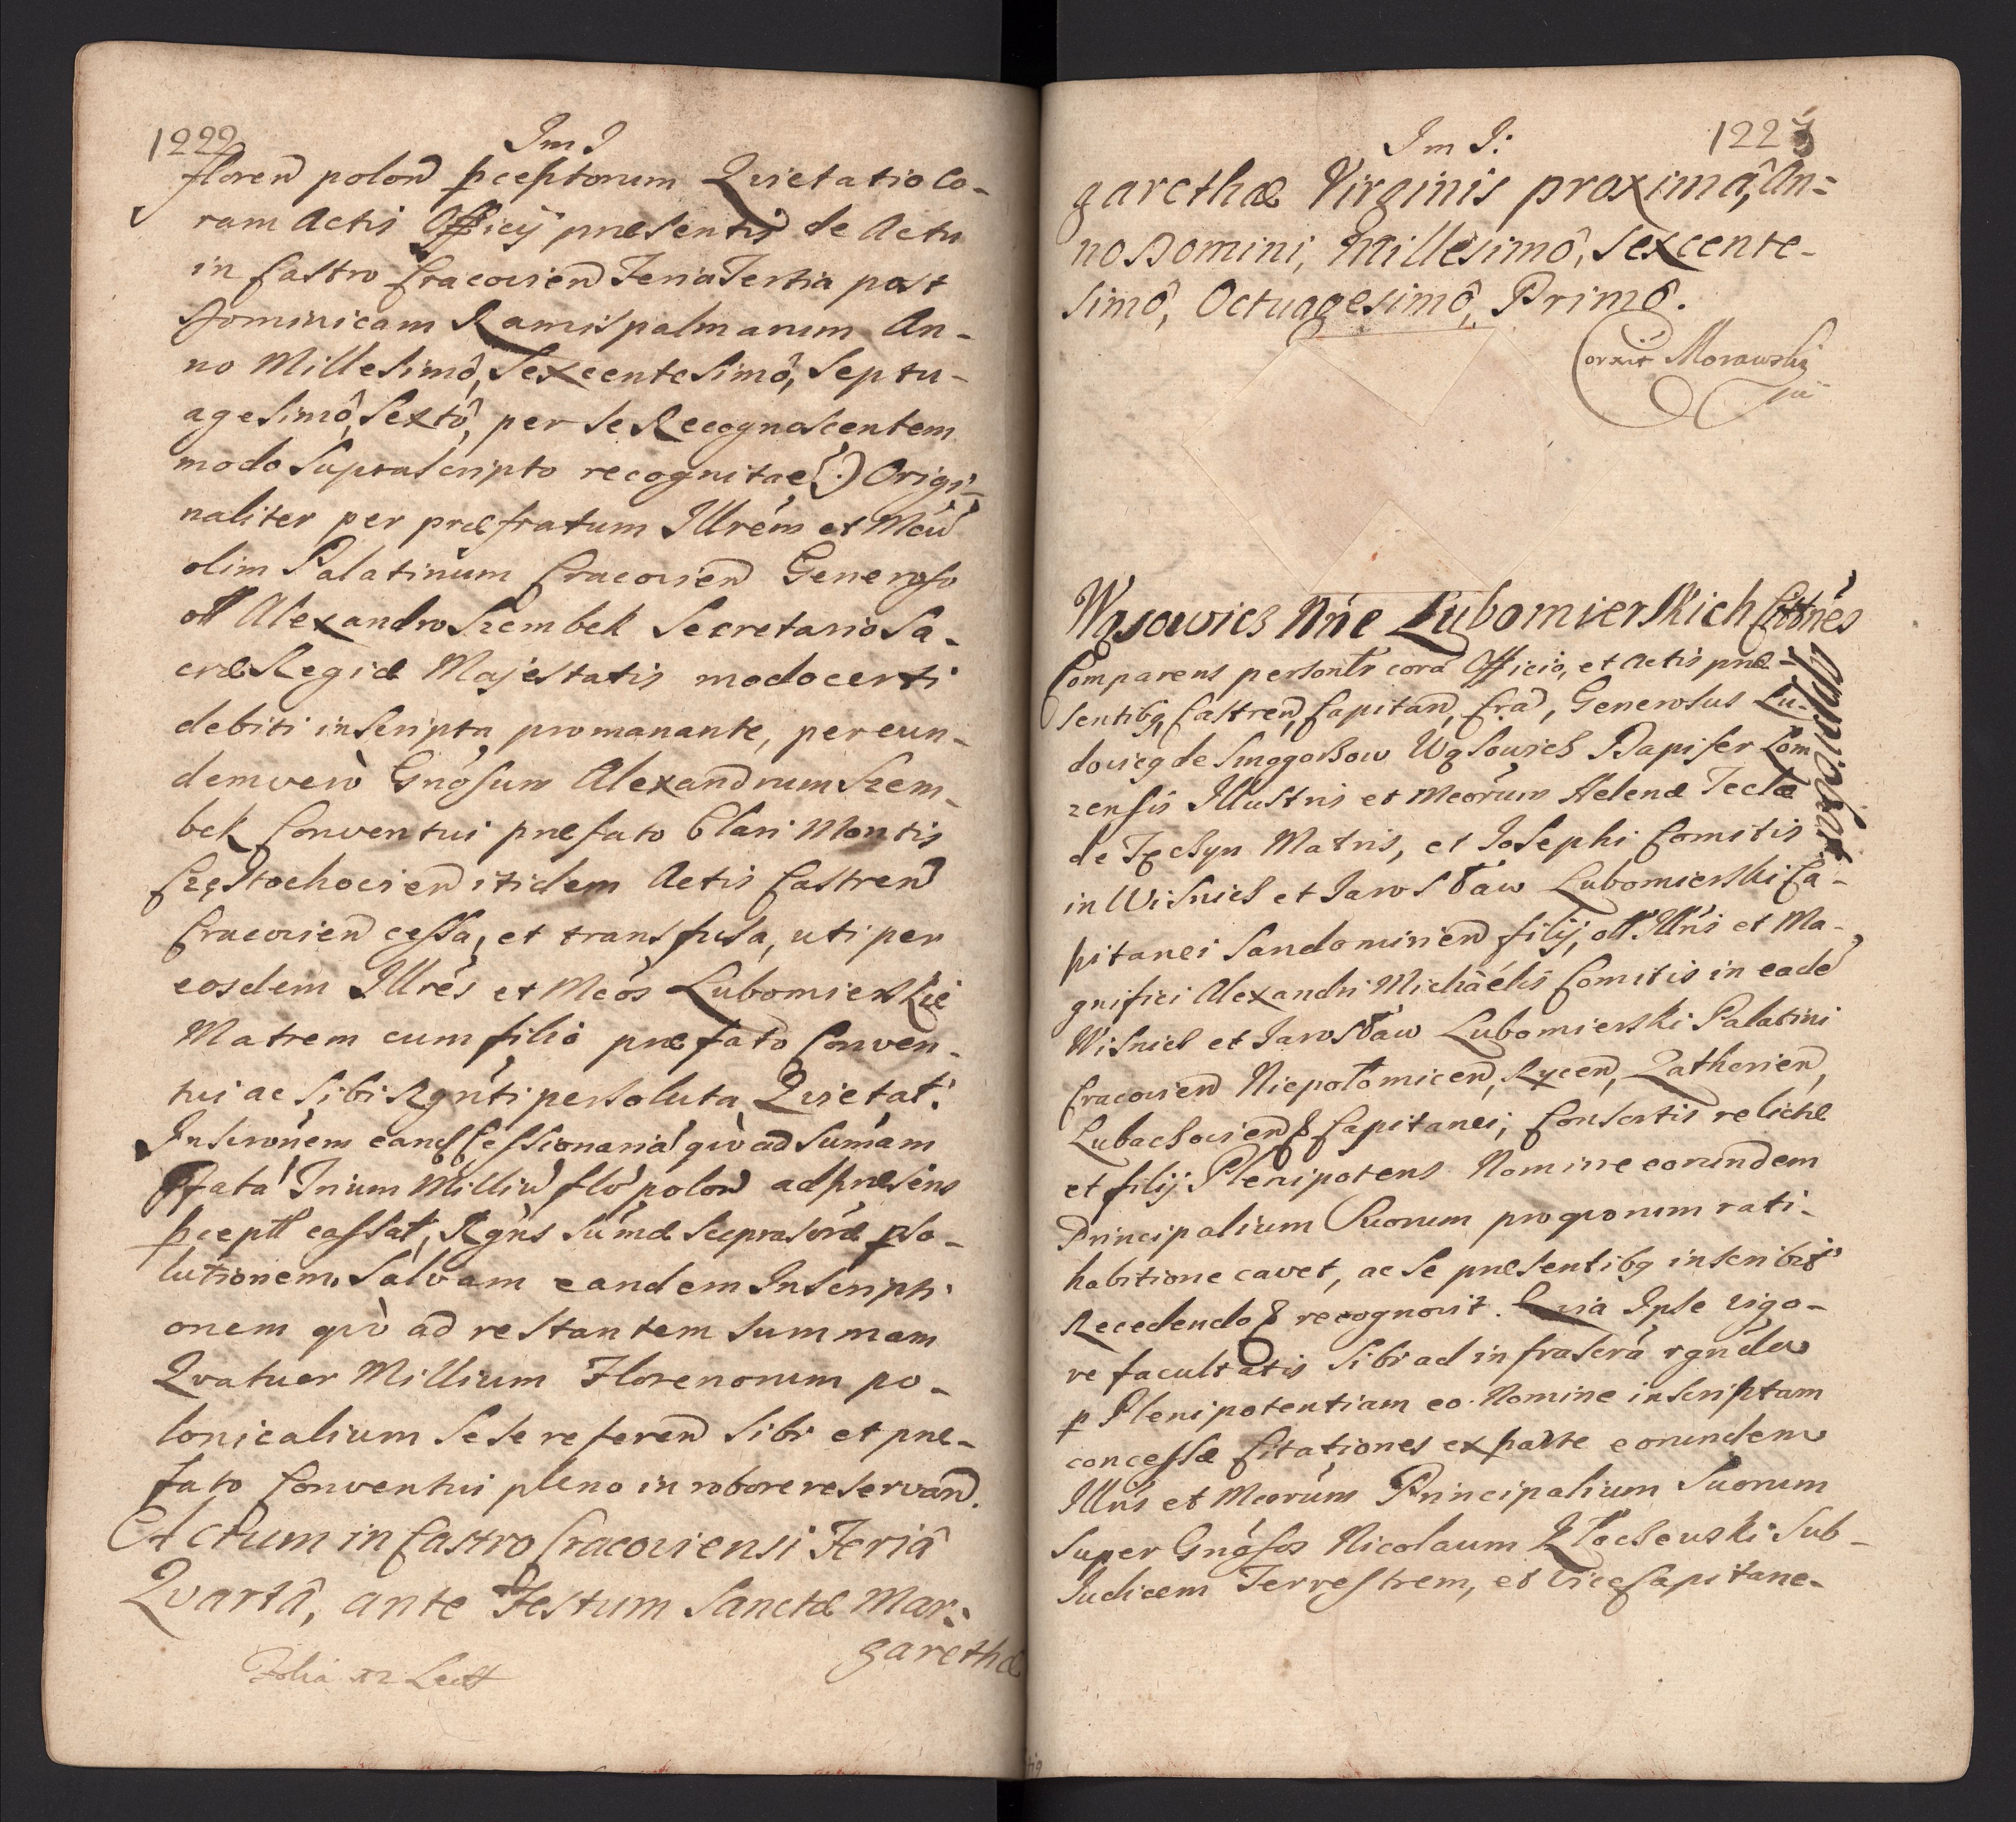 1222
Im I
floren polon pceptorum Quietatio Co-
ram Actis Officij præsentis de Actu
in Castro Cracovien Feria Tertia post
Dominicam Ramispalmarum An-
no Millesimô, Sexcentesimô, Septu-
agesimô, Sextô, per se Recognoscentem
modo Suprascripto recognitae (.) Origi-
naliter per præfratum Illrém et Mcu
olim Palatinum Cracovien Generoso
oll Alexandro Szembek Secretario Sa-
cræ Regiæ Majestatis modo certi
debiti inscripta promanante, per eun-
dem verò Gnósum Alexandrum Szem-
bek Conventui præfato Clari Montis
Częstochovien itidem Actis Castren
Cracovien cessa, et transfusa, uti per
eosdem Illrés et Mcós Lubomierskie
Matrem cum filio præfato Conven-
tui ac sibi Rgnti persoluta Quietat.
Inscronem eand Cessionaria quò ad Sumam
Pfata Trium Milliu flo polon ad præsens
pcepti cassat, Rgns Sumæ Suprascræ pso-
lutionem, Salvam eandem Inscripti
onem quò ad restantem summam
Quatuor Millium Florenorum po-
lonicalium Sese referen Sibi et præ-
fato Conventui pleno in robore reservand.
Actum in Castro Cracoviensi Feriâ
Quartâ, ante Festum Sanctæ Mar-
garethæ
Folia Lectt
Im I:
1223
garethæ Virginis proximâ, An-
no Domini, Millesimô, Sexcente-
simô, Octuagesimô, Primô.
Corexit Morawski
Wąsowicz Nne Lubomierskich Cittnes
prosequendo
Comparens personlr cora Officio, et Actis præ-
sentibq Castren, Capitan, Cra, Generosus Lu-
dovicq de Smogoszow Wąsowicz Dapifer Lom
zensis Illustris et Mcorum Helenæ Teclæ
de Tęczyn Matris, et Josephi Comitis
in Wisnicz et Jarosław Lubomierski Ca-
pitanei Sandomirien filij, oll Illris et Ma-
gnifici Alexandri Michäelis Comitis in eade
Wisnicz et Jarosław Lubomierski Palatini
Cracovien Niepołomicen, Rycen, Zatherien,
Lubaczovien & Capitanei, Consortis relictæ
et filij Plenipotens Nomine eorundem
Principalium Suorum pro quorum rati-
habitione cavet, ac se præsentibq inscribit
Recedendo & recognovit. Quia Ipse vigo-
re facultatis Sibi ad infrascra rgnda
p Plenipotentiam eo Nomine inscriptam
concessæ Citationes ex parte eorundem
Illris et Mcorum Principalium Suorum
Super Gnósos Nicolaum Kłoczewski Sub-
Judicem Terrestrem, et Vice Capitane-